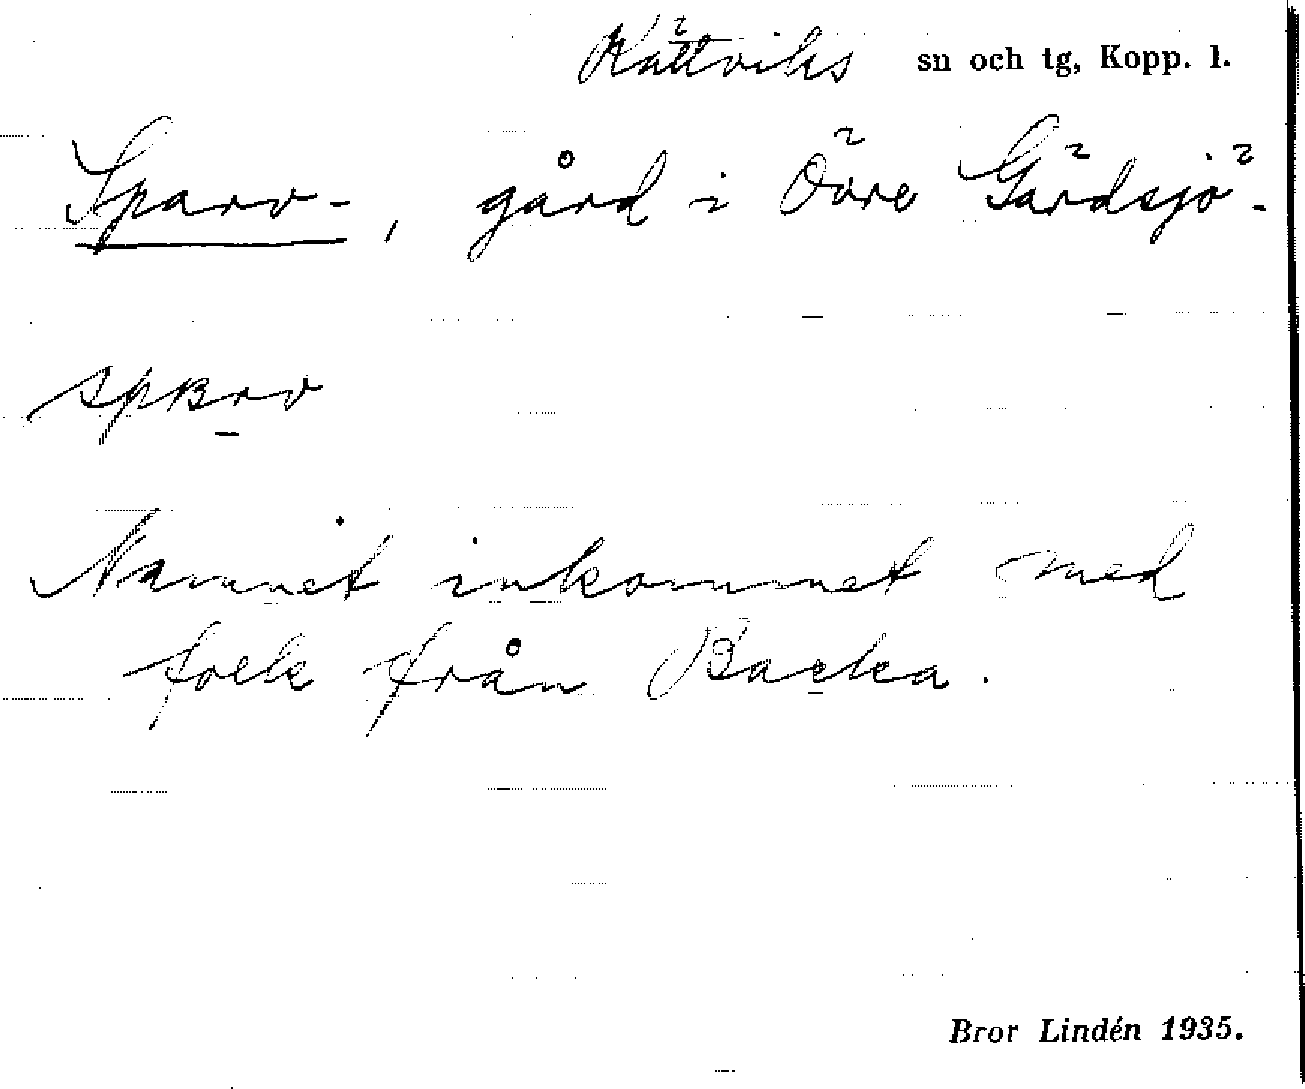 Rättviks sn och tg, Kopp. l.
Sparv-, gård i Övre Gärdsjö.
Namnet inkommet med
folk från Backa.
Bror Lindén 1935.